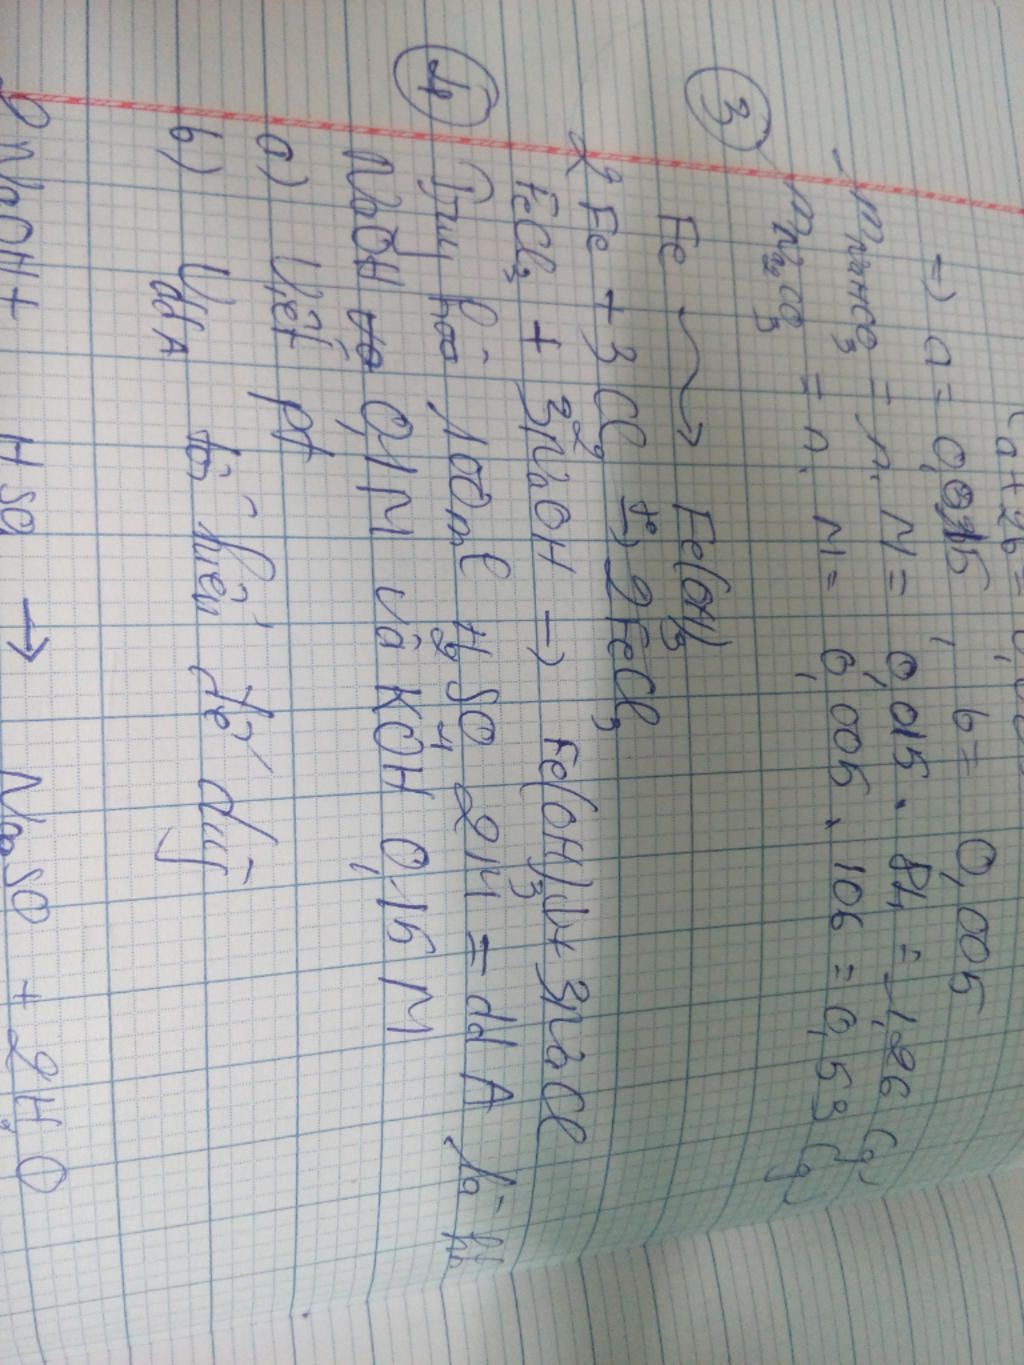 (a + 2b =
=) a = 0,015, b = 0,005
mNaHCO₃ = n. M = 0,015. 84 = 1,26 (g)
mNa₂CO₃ = n. M = 0,005. 106 = 0,53 (g)
③
Fe → Fe(OH)₃
2Fe + 3Cl₂ t°→ 2FeCl₃
FeCl₃ + 3NaOH → Fe(OH)₃↓ + 3NaCl
④ Trung hoà 100ml H₂SO₄ 2M = dd A là hh
NaOH 0,1M và KOH 0,15M
a) Viết pt
b) VddA tối thiểu để dùng
2NaOH + H SO → Na₂SO + 2H₂O